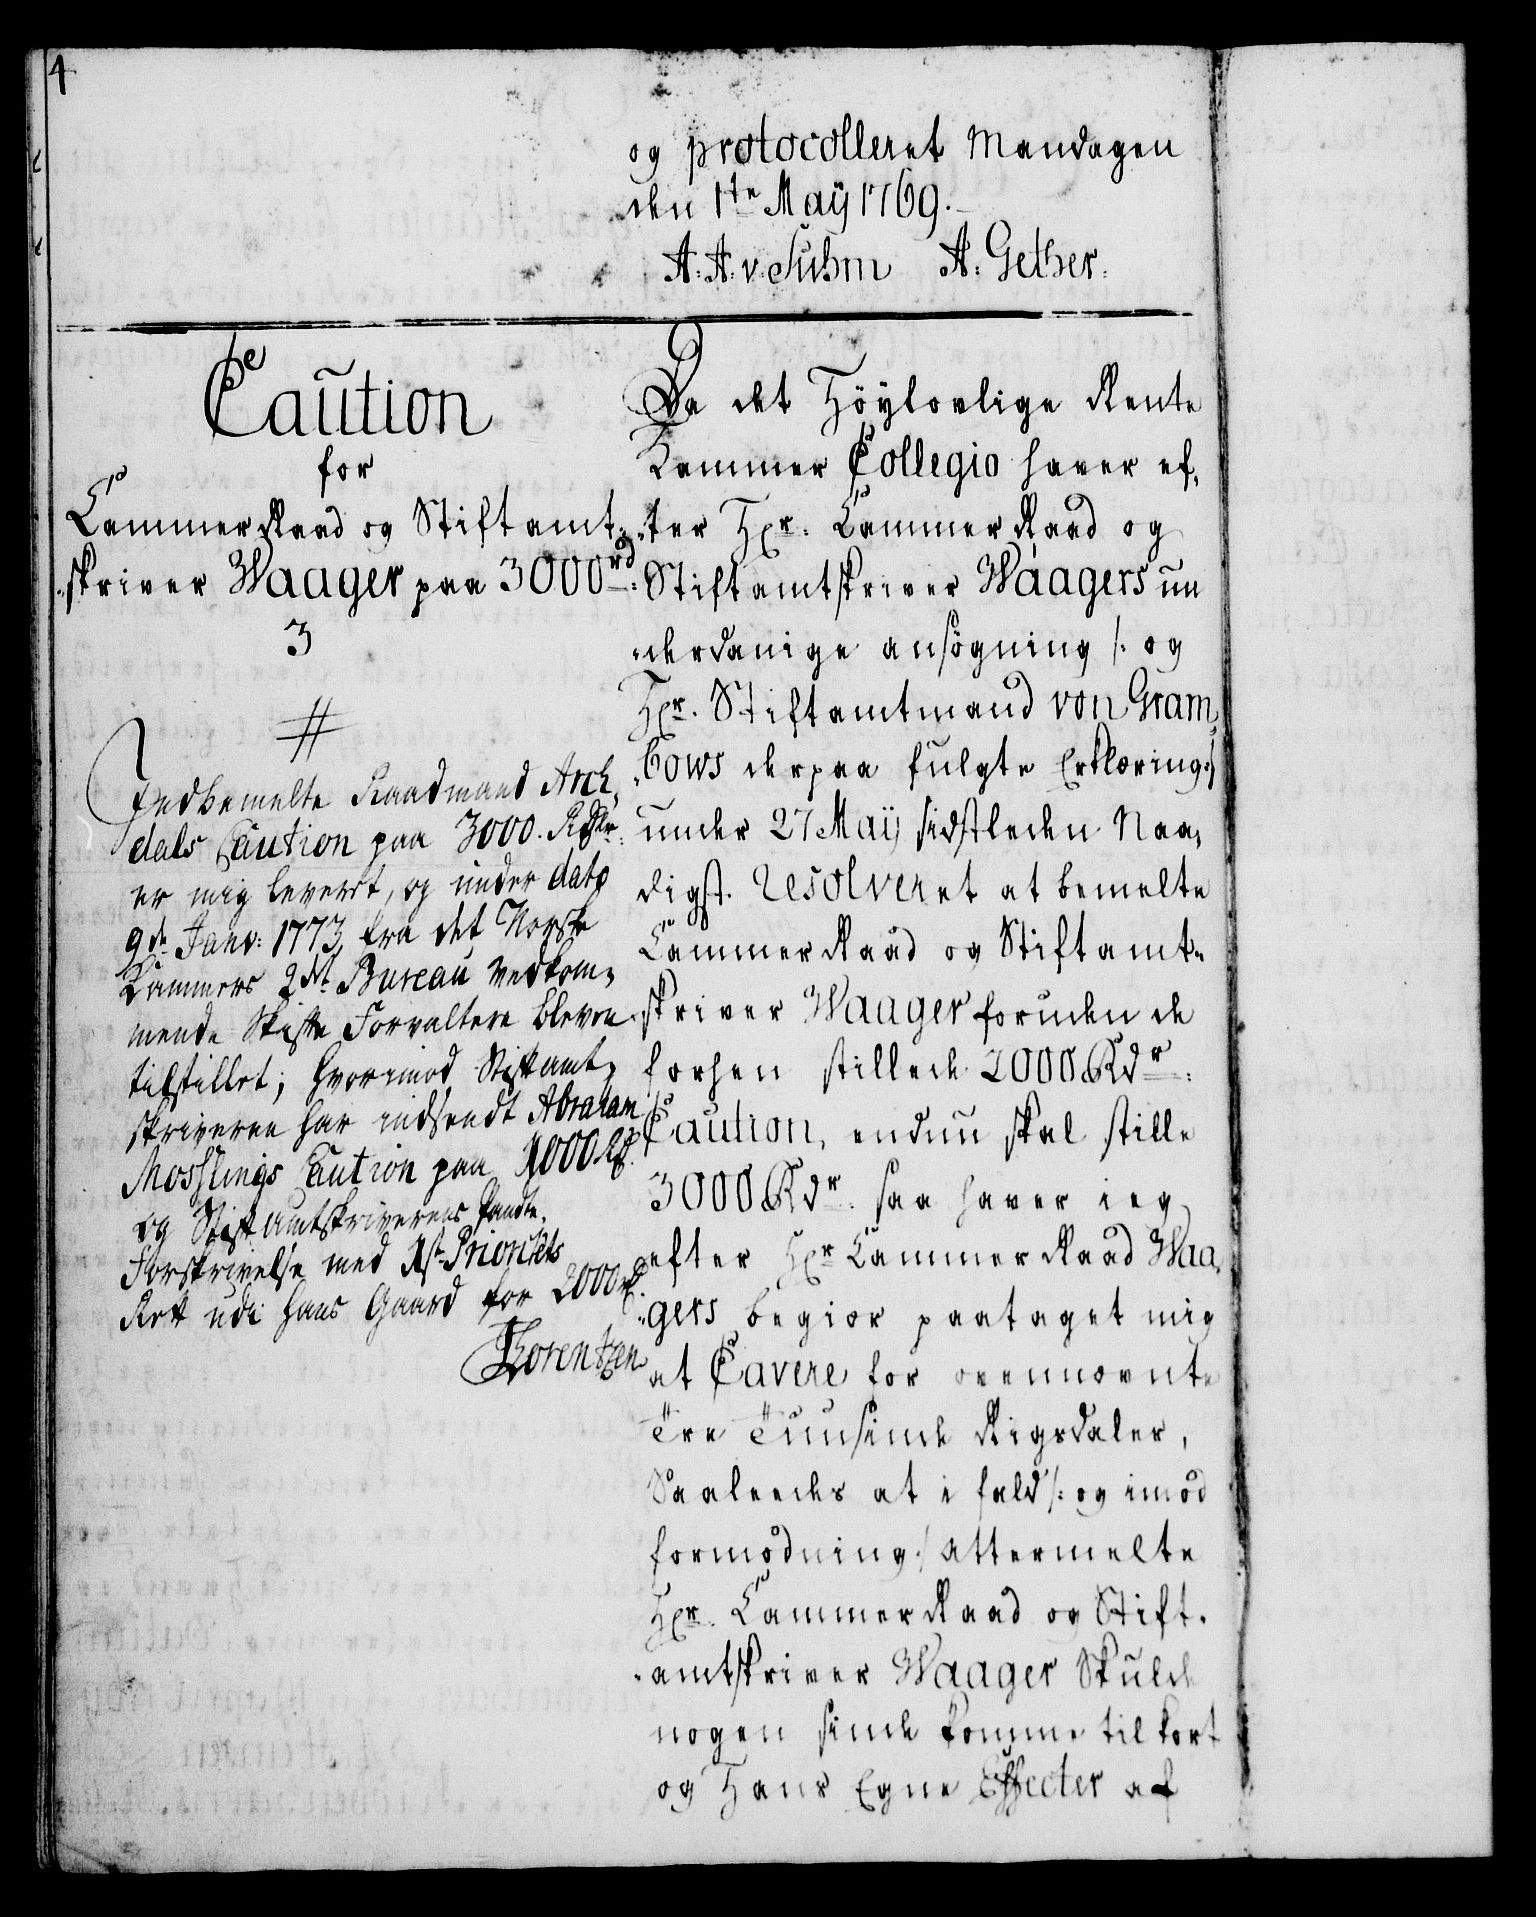 4
og protocolleret Mandagen
den 1te Maÿ 1769.
A: A. v. Suhm A: Gether.
Caution
for
CammerRaad og Stiftamt„
„skriver Waager paa 3000rd:
3
#
Indbemelte Raadmand Arch„
dals Caution paa 3000. Rdlr.
er mig leveret, og under dato
9de Janv: 1773, fra det Norske
Kammers 2det Bureau vedkom„
mende Skifte Forvaltere bleven
tilstillet; hvorimod Stiftamt„
skriveren har indsendt Abraham
Mosslings Caution paa 1000 Rd.
og Stiftamtskriverens Pandte„
Forskrivelse med 1ste Prioritets
Rett udi hans Gaard for 2000 rd.
Lorentzen
Da det Höylovlige Rente
Kammer Collegio haver ef„
„ter Hr. CammerRaad og
Stiftamtskriver Waagers un
„derdanige ansøgning /: og
Hr. Stiftamtmand von Gram„
„bows derpaa fulgte Erklæring:/
under 27 Maÿ sidstleden Naa„
digst resolveret at bemelte
CammerRaad og Stiftamt„
„skriver Waager foruden de
forhen stillede 2000 Rdr:
Caution, endnu skal stille
3000 Rdr. saa haver ieg
efter Hr CammerRaad Waa„
„gers begiør paataget mig
at Cavere for ovennævnte
Tre Tuusinde Rigsdaler,
Saaleedes at i fald /: og imod
formodning:/ attermelte
Hr. CammerRaad og Stift„
„amtskriver Waager Skulde
nogen sinde komme til kort
og Hans Egne Effecter af